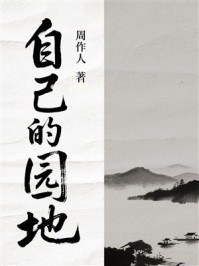 自己的园地
周作人 著